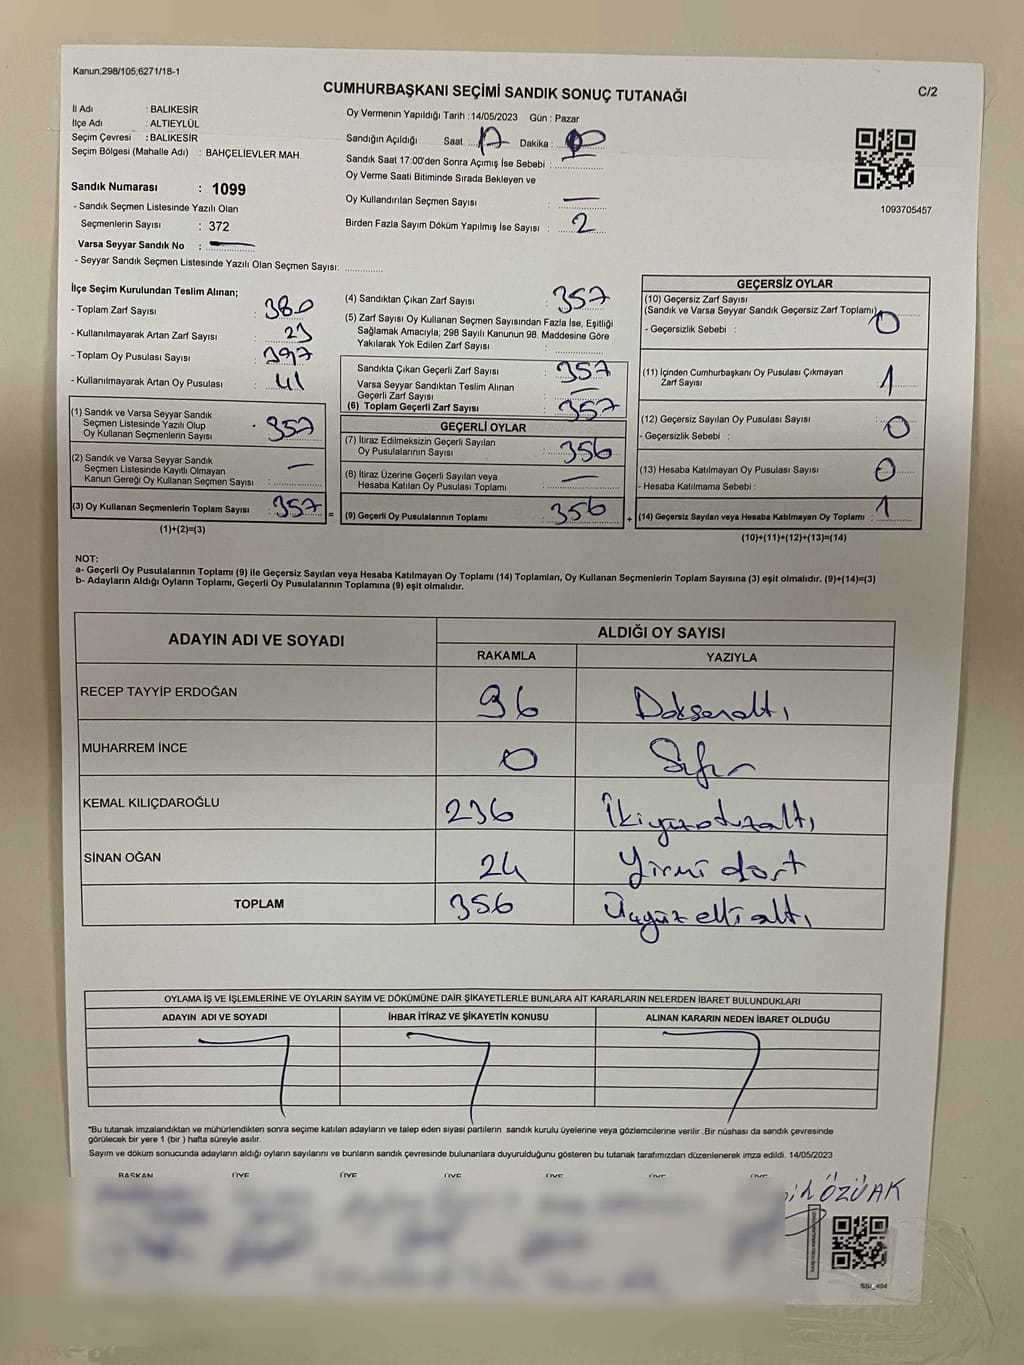 Kanun;298/105;6271/18-1
CUMHURBAŞKANI SEÇİMİ SANDIK SONUÇ TUTANAĞI
C/2
İl Adı : BALIKESİR
İlçe Adı : ALTIEYLÜL
Seçim Çevresi : BALIKESİR
Seçim Bölgesi (Mahalle Adı) : BAHÇELİEVLER MAH.
Sandık Numarası : 1099
- Sandık Seçmen Listesinde Yazılı Olan
Seçmenlerin Sayısı : 372
Varsa Seyyar Sandık No : —
- Seyyar Sandık Seçmen Listesinde Yazılı Olan Seçmen Sayısı: ............
Oy Vermenin Yapıldığı Tarih : 14/05/2023 Gün : Pazar
Sandığın Açıldığı Saat : 17 Dakika :
Sandık Saat 17:00'den Sonra Açımış İse Sebebi :
Oy Verme Saati Bitiminde Sırada Bekleyen ve
Oy Kullandırılan Seçmen Sayısı : —
Birden Fazla Sayım Döküm Yapılmış İse Sayısı : 2
1093705457
İlçe Seçim Kurulundan Teslim Alınan;
- Toplam Zarf Sayısı : 380
- Kullanılmayarak Artan Zarf Sayısı : 23
- Toplam Oy Pusulası Sayısı : 397
- Kullanılmayarak Artan Oy Pusulası : 41
(1) Sandık ve Varsa Seyyar Sandık
Seçmen Listesinde Yazılı Olup
Oy Kullanan Seçmenlerin Sayısı : 357
(2) Sandık ve Varsa Seyyar Sandık
Seçmen Listesinde Kayıtlı Olmayan
Kanun Gereği Oy Kullanan Seçmen Sayısı : —
(3) Oy Kullanan Seçmenlerin Toplam Sayısı : 357
(1)+(2)=(3)
(4) Sandıktan Çıkan Zarf Sayısı : 357
(5) Zarf Sayısı Oy Kullanan Seçmen Sayısından Fazla İse, Eşitliği
Sağlamak Amacıyla; 298 Sayılı Kanunun 98. Maddesine Göre
Yakılarak Yok Edilen Zarf Sayısı :
Sandıkta Çıkan Geçerli Zarf Sayısı : 357
Varsa Seyyar Sandıktan Teslim Alınan
Geçerli Zarf Sayısı : —
(6) Toplam Geçerli Zarf Sayısı : 357
GEÇERLİ OYLAR
(7) İtiraz Edilmeksizin Geçerli Sayılan
Oy Pusulalarının Sayısı : 356
(8) İtiraz Üzerine Geçerli Sayılan veya
Hesaba Katılan Oy Pusulası Toplamı : —
= (9) Geçerli Oy Pusulalarının Toplamı : 356
GEÇERSİZ OYLAR
(10) Geçersiz Zarf Sayısı
(Sandık ve Varsa Seyyar Sandık Geçersiz Zarf Toplamı) 0
- Geçersizlik Sebebi :
(11) İçinden Cumhurbaşkanı Oy Pusulası Çıkmayan
Zarf Sayısı : 1
(12) Geçersiz Sayılan Oy Pusulası Sayısı : 0
- Geçersizlik Sebebi :
(13) Hesaba Katılmayan Oy Pusulası Sayısı : 0
- Hesaba Katılmama Sebebi :
+ (14) Geçersiz Sayılan veya Hesaba Katılmayan Oy Toplamı : 1
(10)+(11)+(12)+(13)=(14)
NOT:
a- Geçerli Oy Pusulalarının Toplamı (9) ile Geçersiz Sayılan veya Hesaba Katılmayan Oy Toplamı (14) Toplamları, Oy Kullanan Seçmenlerin Toplam Sayısına (3) eşit olmalıdır. (9)+(14)=(3)
b- Adayların Aldığı Oyların Toplamı, Geçerli Oy Pusulalarının Toplamına (9) eşit olmalıdır.
ADAYIN ADI VE SOYADI ALDIĞI OY SAYISI
RAKAMLA YAZIYLA
RECEP TAYYİP ERDOĞAN 96 Doksanaltı
MUHARREM İNCE 0 Sıfır
KEMAL KILIÇDAROĞLU 236 İkiyüzotuzaltı
SİNAN OĞAN 24 Yirmi dört
TOPLAM 356 Üçyüz elli altı
OYLAMA İŞ VE İŞLEMLERİNE VE OYLARIN SAYIM VE DÖKÜMÜNE DAİR ŞİKAYETLERLE BUNLARA AİT KARARLARIN NELERDEN İBARET BULUNDUKLARI
ADAYIN ADI VE SOYADI İHBAR İTİRAZ VE ŞİKAYETİN KONUSU ALINAN KARARIN NEDEN İBARET OLDUĞU
"Bu tutanak imzalandıktan ve mühürlendikten sonra seçime katılan adayların ve talep eden siyasi partilerin sandık kurulu üyelerine veya gözlemcilerine verilir .Bir nüshası da sandık çevresinde
görülecek bir yere 1 (bir ) hafta süreyle asılır.
Sayım ve döküm sonucunda adayların aldığı oyların sayılarını ve bunların sandık çevresinde bulunanlara duyurulduğunu gösteren bu tutanak tarafımızdan düzenlenerek imza edildi. 14/05/2023
BAŞKAN ÜYE ÜYE ÜYE ÜYE ÜYE ÜYE
ÖZÜAK